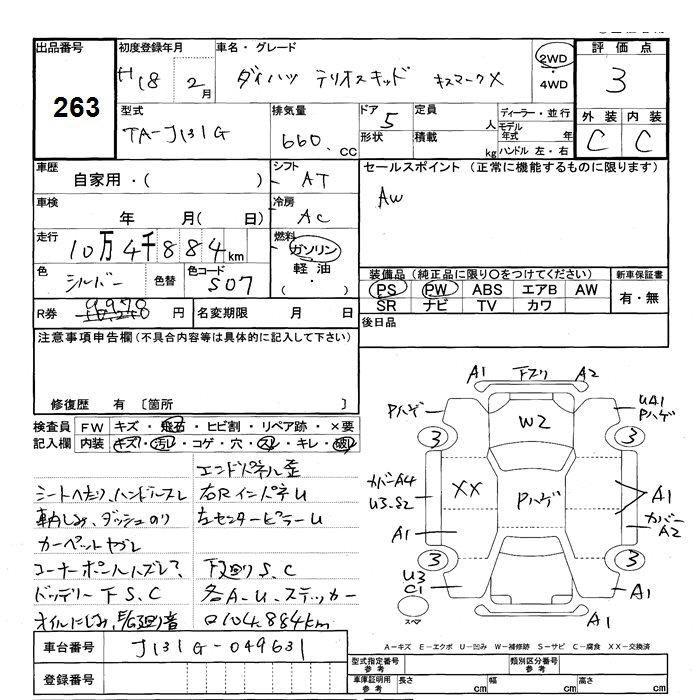 出品番号 初度登録年月 車名・グレード 2WD 評価点
263 H18 2月 ダイハツ テリオスキッド キスマークX ・4WD 3
型式 排気量 ドア 定員 ディーラー・並行 外装 内装
TA-J131G 660. CC 5 人 モデル年式 年 C C
形状 積載 kg ハンドル 左・右
車歴 シフト セールスポイント (正常に機能するものに限ります)
自家用・( ) AT AW
車検 冷房
年 月( 日) AC
走行 燃料
10万4千884km ガソリン
色 色替 色コード 軽油 装備品 (純正品に限り〇をつけてください) 新車保証書
シルバー S07 ・( ) PS PW ABS エアB AW 有・無
SR ナビ TV カワ
R券 9970 円 名変期限 月 日 後日品
注意事項申告欄 (不具合内容等は具体的に記入して下さい)
修復歴 有 〔箇所 〕
検査員 FW キズ・飛石・ヒビ割・リペア跡・×要
記入欄 内装 キズ・汚レ・コゲ・穴・スレ・キレ・破レ
エンドパネル歪
シートへたり、ハンドルスレ 右RインパネU
軸しみ、ダッシュのり 左センターピラーU
カーペットヤブレ
コーナーポールハズレ、 下廻りS.C
ドッテリー下S.C 各A-U.ステッカー
オイルにじみ、 □104.884km
A1 下スリ A2
Pハゲ W2 UA1 Pハゲ
3 3
カバーA4 U3.S2 XX Pハゲ A1
A1 カバーA2
3 3
U3 C1 A1
スペア A1
A-キズ E-エクボ U-凹み W-補修跡 S-サビ C-腐食 XX-交換済
車台番号 J131G-049631
登録番号
型式指定番号 参考 類別区分番号 参考
車庫証明用 参考 長さ cm 幅 cm 高さ cm